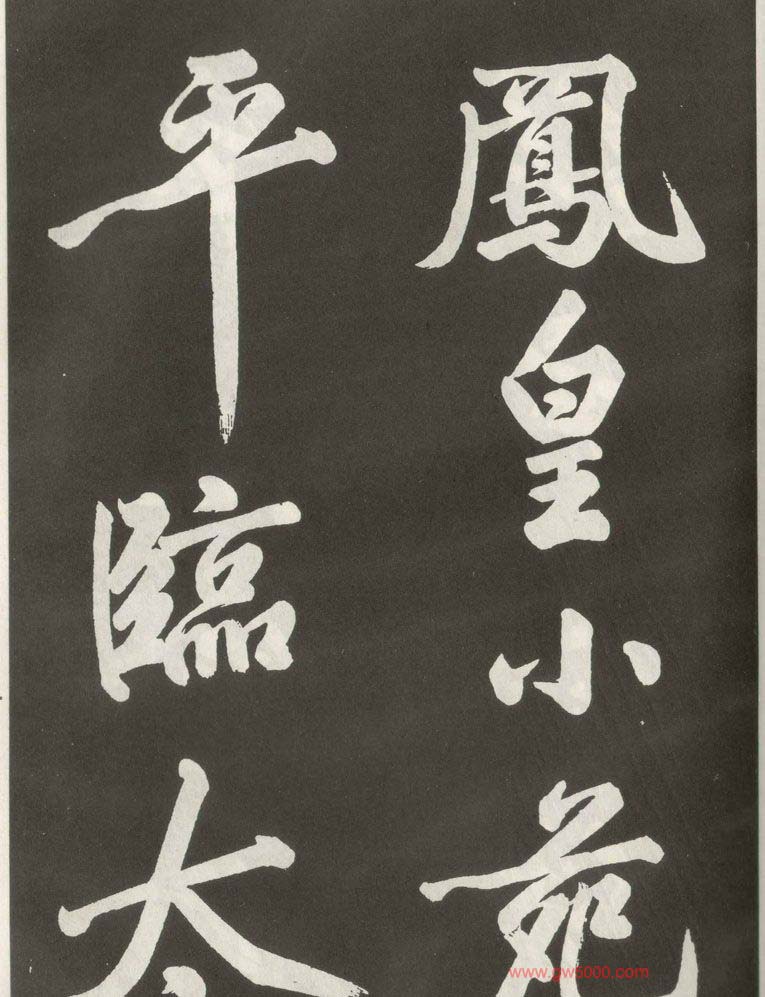 鳳皇小苑
平臨太
www.gw6000.com